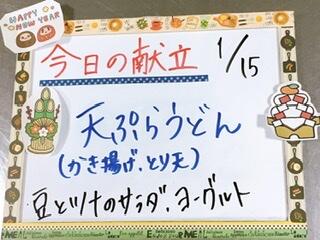 HAPPY NEW YEAR
今日の献立 1/15
天ぷらうどん
(かき揚げ、とり天)
豆とツナのサラダ、ヨーグルト